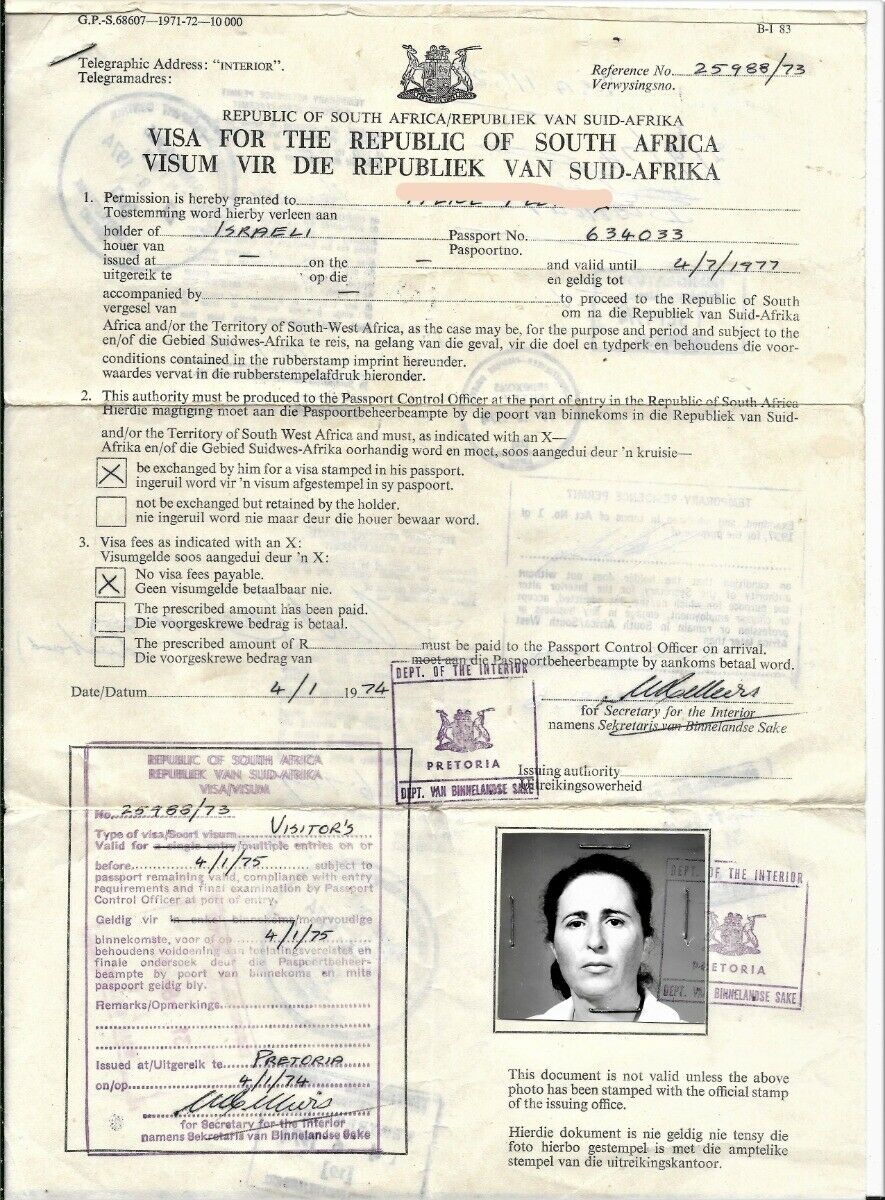 G.P.-S.68607—1971-72—10 000
B-I 83
Telegraphic Address: "INTERIOR".
Telegramadres:
Reference No. 25988/73
Verwysingsno.
REPUBLIC OF SOUTH AFRICA/REPUBLIEK VAN SUID-AFRIKA
VISA FOR THE REPUBLIC OF SOUTH AFRICA
VISUM VIR DIE REPUBLIEK VAN SUID-AFRIKA
1. Permission is hereby granted to
Toestemming word hierby verleen aan
holder of ISRAELI Passport No. 634033
houer van Paspoortno.
issued at — on the — and valid until 4/7/1977
uitgereik te op die en geldig tot
accompanied by — to proceed to the Republic of South
vergesel van om na die Republiek van Suid-Afrika
Africa and/or the Territory of South-West Africa, as the case may be, for the purpose and period and subject to the
en/of die Gebied Suidwes-Afrika te reis, na gelang van die geval, vir die doel en tydperk en behoudens die voor-
conditions contained in the rubberstamp imprint hereunder.
waardes vervat in die rubberstempelafdruk hieronder.
2. This authority must be produced to the Passport Control Officer at the port of entry in the Republic of South Africa
Hierdie magtiging moet aan die Paspoortbeheerbeampte by die poort van binnekoms in die Republiek van Suid-
and/or the Territory of South West Africa and must, as indicated with an X—
Afrika en/of die Gebied Suidwes-Afrika oorhandig word en moet, soos aangedui deur 'n kruisie—
X be exchanged by him for a visa stamped in his passport.
ingeruil word vir 'n visum afgestempel in sy paspoort.
not be exchanged but retained by the holder.
nie ingeruil word nie maar deur die houer bewaar word.
3. Visa fees as indicated with an X:
Visumgelde soos aangedui deur 'n X:
X No visa fees payable.
Geen visumgelde betaalbaar nie.
The prescribed amount has been paid.
Die voorgeskrewe bedrag is betaal.
The prescribed amount of R must be paid to the Passport Control Officer on arrival.
Die voorgeskrewe bedrag van moet aan die Paspoortbeheerbeampte by aankoms betaal word.
Date/Datum 4/1 1974
DEPT. OF THE INTERIOR
PRETORIA
DEPT. VAN BINNELANDSE SAKE
for Secretary for the Interior
namens Sekretaris van Binnelandse Sake
Issuing authority
Uitreikingsowerheid
REPUBLIC OF SOUTH AFRICA
REPUBLIEK VAN SUID-AFRIKA
VISA/VISUM
No. 25988/73
Type of visa/Soort visum VISITOR'S
Valid for a single entry/multiple entries on or
before 4/1/75 subject to
passport remaining valid, compliance with entry
requirements and final examination by Passport
Control Officer at port of entry.
Geldig vir 'n enkel binnekoms/meervoudige
binnekomste, voor of op 4/1/75
behoudens voldoening aan toelatingsvereistes en
finale ondersoek deur die Paspoortbeheer-
beampte by poort van binnekoms en mits
paspoort geldig bly.
Remarks/Opmerkings.
Issued at/Uitgereik te PRETORIA
on/op 4/1/74
for Secretary for the Interior
namens Sekretaris van Binnelandse Sake
DEPT. OF THE INTERIOR
PRETORIA
DEPT. VAN BINNELANDSE SAKE
This document is not valid unless the above
photo has been stamped with the official stamp
of the issuing office.
Hierdie dokument is nie geldig nie tensy die
foto hierbo gestempel is met die amptelike
stempel van die uitreikingskantoor.